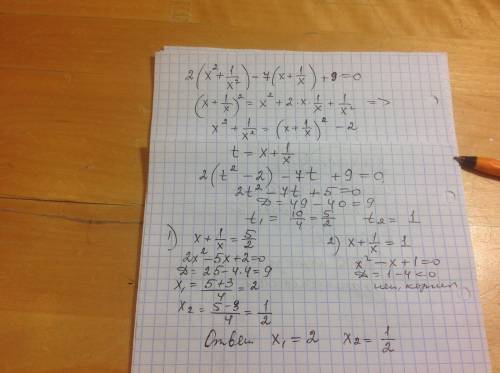 2(x² + 1/x²) - 7(x + 1/x) + 9 = 0
(x + 1/x)² = x² + 2·x·1/x + 1/x² =>
x² + 1/x² = (x + 1/x)² - 2
t = x + 1/x
2(t² - 2) - 7t + 9 = 0
2t² - 7t + 5 = 0
D = 49 - 40 = 9
t₁ = 10/4 = 5/2 t₂ = 1
1) x + 1/x = 5/2
2x² - 5x + 2 = 0
D = 25 - 4·4 = 9
x₁ = (5+3)/4 = 2
x₂ = (5-3)/4 = 1/2
2) x + 1/x = 1
x² - x + 1 = 0
D = 1 - 4 < 0
нет корней
Ответ x₁ = 2 x₂ = 1/2